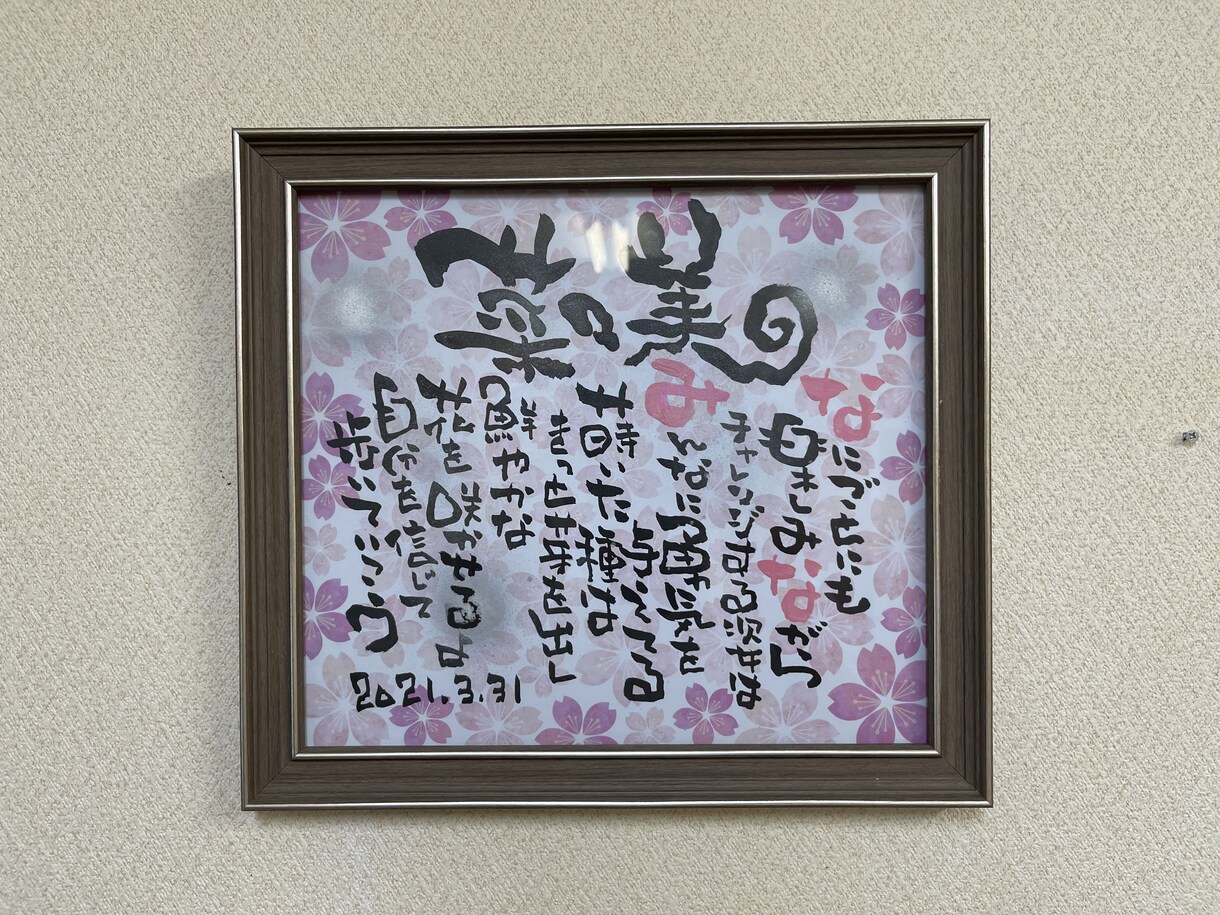 なにごとにも
楽しみながら
チャレンジする姿は
みんなに勇気を
与えてる
いた種は
きっと芽を出し
鮮やかな
花を咲かせるよ
自分を信じて
歩いていこう
2021.3.31